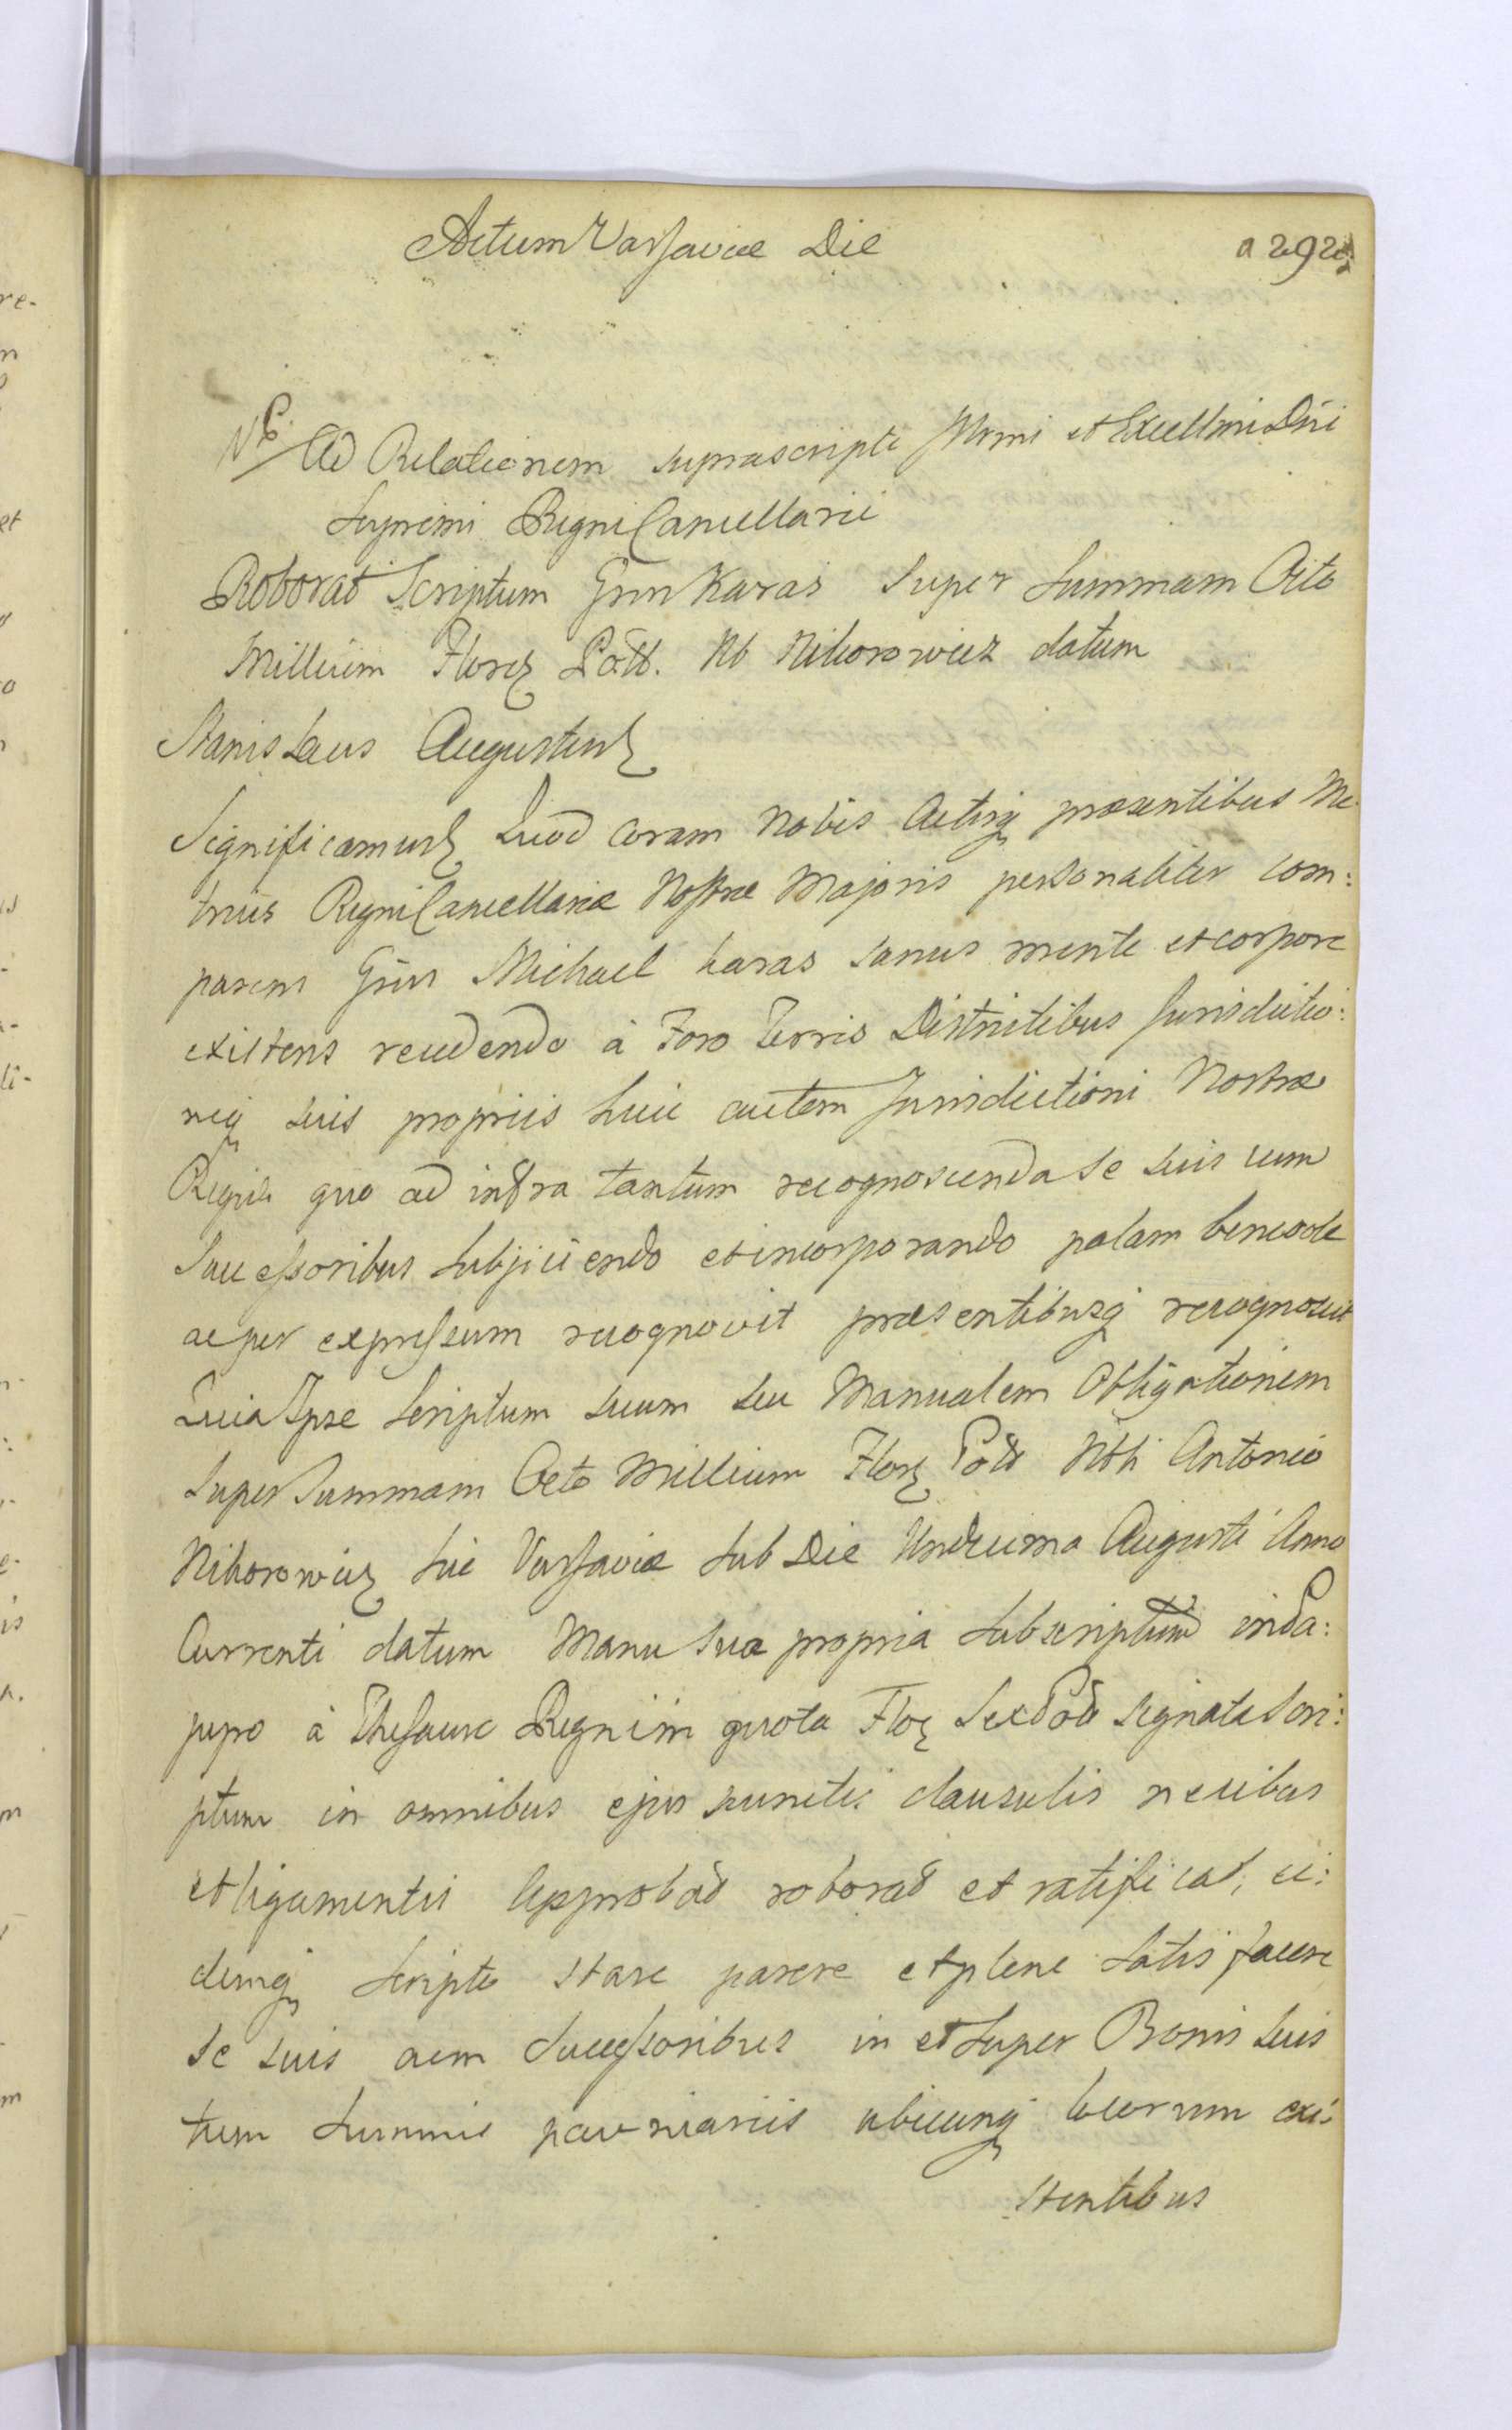 Actum Varsaviæ Die
a 292
Ad Relationem suprascripti Illrmi et Excellmi Dni
Supremi Regni Cancellarii
Roborat Scriptum Gnsi Karas Super Summam Octo
Millium Florq Poll. Nb Nikorowicz datum
Stanislaus Augustus
Significamus Quod coram Nobis Actisq præsentibus Me
tricis Regni Cancellariæ Nostræ Majoris personaliter com:
parens Gnsus Michael Karas sanus mente et corpore
existens recedendo à Foro Terris Districtibus Jurisdictio:
niq suis propriis huic autem Jurisdictioni Nostræ
Regiæ quo ad infra tantum recognoscenda se suis cum
Successoribus subjiciendo et incorporando palam libereq
ac per expressum recognovit præsentibusq recognoscit
Quia Ipse Scriptum suum seu Manualem Obligationem
Super Summam Octo Millium Flor Poll Nbli Antonio
Nikorowicz hic Varsaviæ sub Die Undecima Augusti Anno
Currenti datum Manu sua propria subscriptum in Pa:
pyro à Thesauro Regni in quota Flor Sex Poll signata Scri:
ptum in omnibus ejus punctis clausulis nexibus
et ligamentis Approbat roborat et ratificat, ei:
demq Scripto stare parere et plene satisfacere
se suis cum Successoribus in et super Bonis suis
tum Summis pecuniariis ubicunq locorum exi:
stentibus